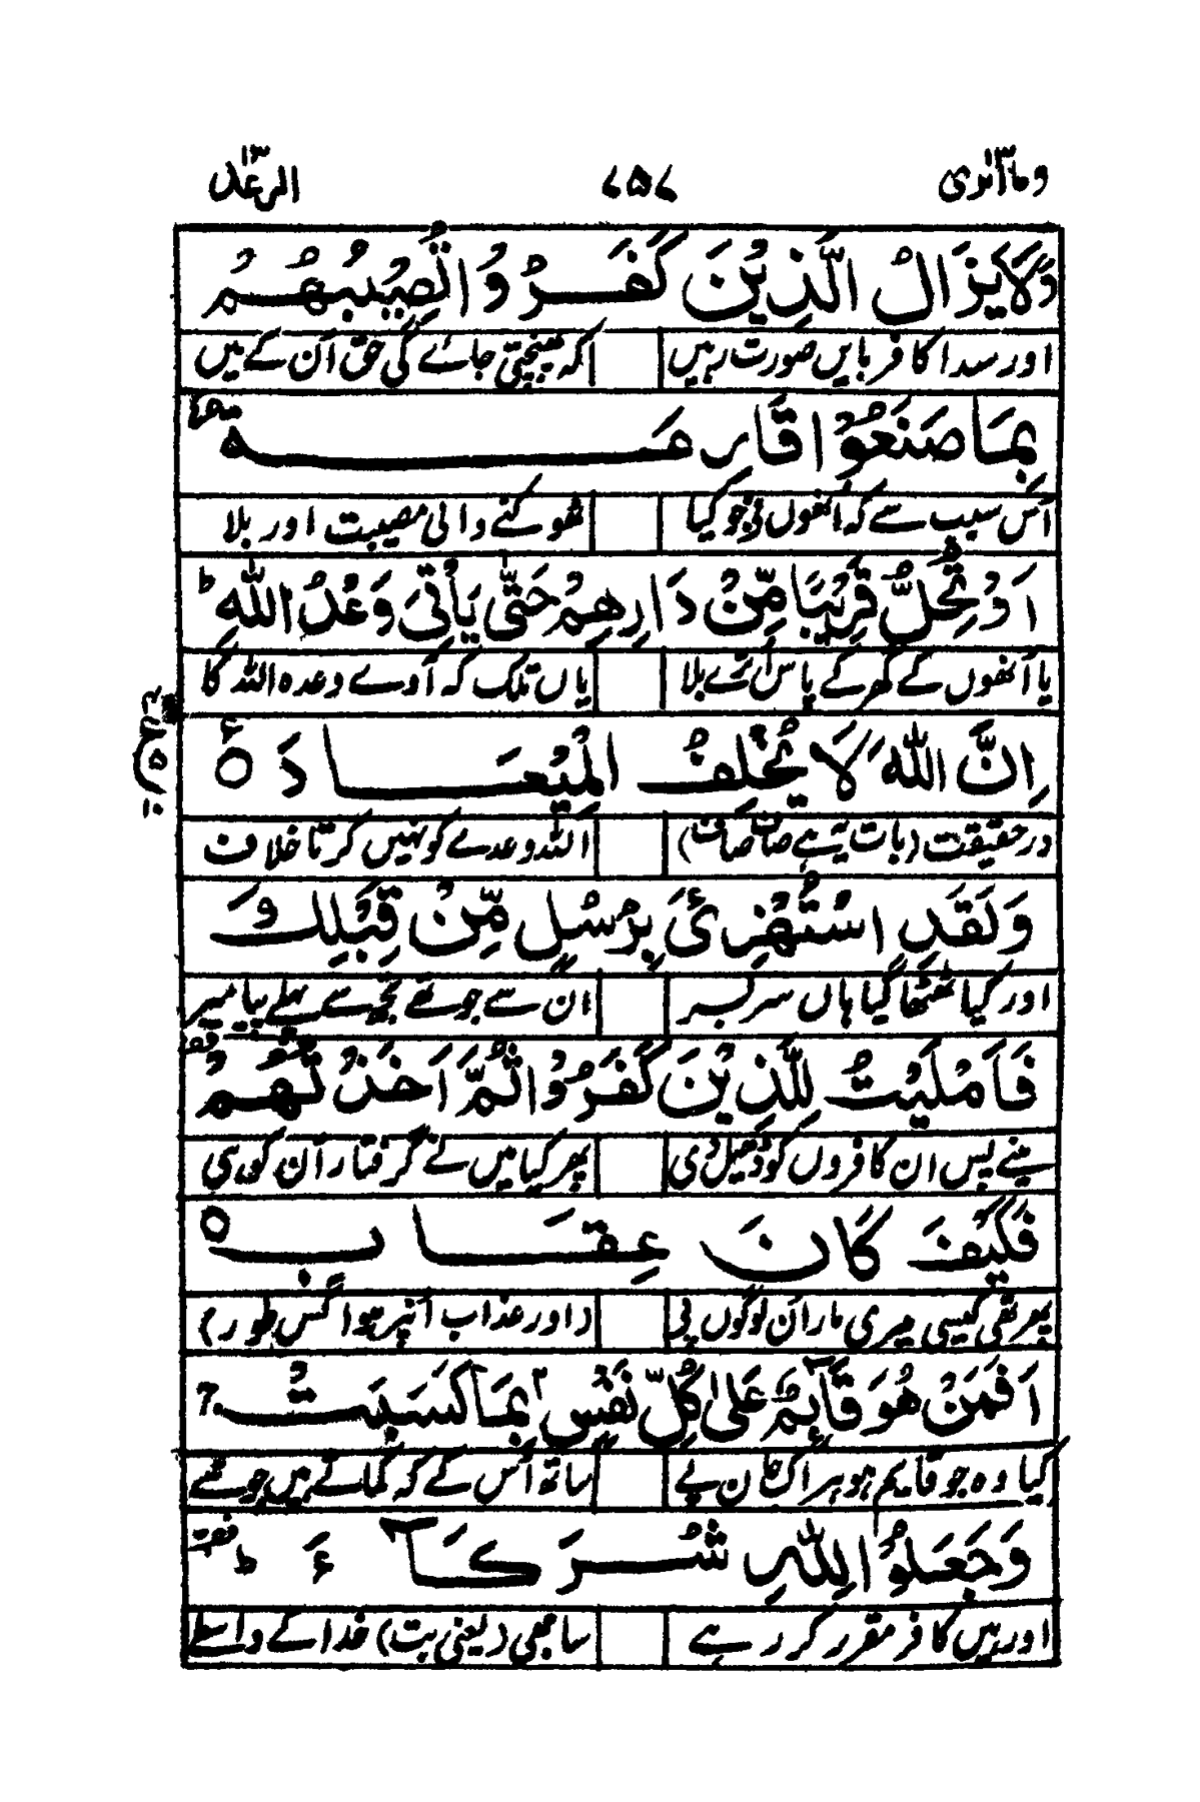 وما ابرئ ۱۳ ۷۵۷ الرعد ۱۳
وَلَا يَزَالُ الَّذِيْنَ كَفَرُوْا تُصِيْبُهُمْ
اور سدا کافر بایں صورت رہیں اکہ پہنچتی جائے گی حق اُن کے میں
بِمَا صَنَعُوْا قَارِعَةٌ
اُس سبب سے کہ اُنھوں نے جو کیا ٹھوکنے والی مصیبت اور بلا
اَوْ تَحُلُّ قَرِيْبًا مِّنْ دَارِهِمْ حَتّٰى يَأْتِيَ وَعْدُ اللّٰهِ ؕ
یا اُنھوں کے گھر کے پاس اُترے بلا یاں تلک کہ آوے وعدہ اللہ کا
اِنَّ اللّٰهَ لَا يُخْلِفُ الْمِيْعَادَ ۝ ع
در حقیقت (بات یہ ہے صاف صاف) اللہ وعدے کو نہیں کرتا خلاف
وَلَقَدِ اسْتُهْزِئَ بِرُسُلٍ مِّنْ قَبْلِكَ
اور کیا ٹھٹھا گیا ہاں سر بسر ان سے جو تھے تجھ سے پہلے پیامبر
فَاَمْلَيْتُ لِلَّذِيْنَ كَفَرُوْا ثُمَّ اَخَذْتُهُمْ قف
مینے پس ان کافروں کو ڈھیل دی پھر کیا میں نے گرفتار اُن کو سبھی
فَكَيْفَ كَانَ عِقَابِ ۝
پھر تھی کیسی میری مار اُن لوگوں پی (اور عذاب اُنپر ہوا کس طور ر)
اَفَمَنْ هُوَ قَآئِمٌ عَلٰى كُلِّ نَفْسٍۭ بِمَا كَسَبَتْ ج
کیا وہ جو قایم ہو ہر اک جان پے ساتھ اُس کے کہ کماتے ہیں جو تھے
وَجَعَلُوْا لِلّٰهِ شُرَكَآءَ ؕ
اور ہیں کافر مقرر کر رہے ساجھی (یعنی بت) خدا کے واسطے